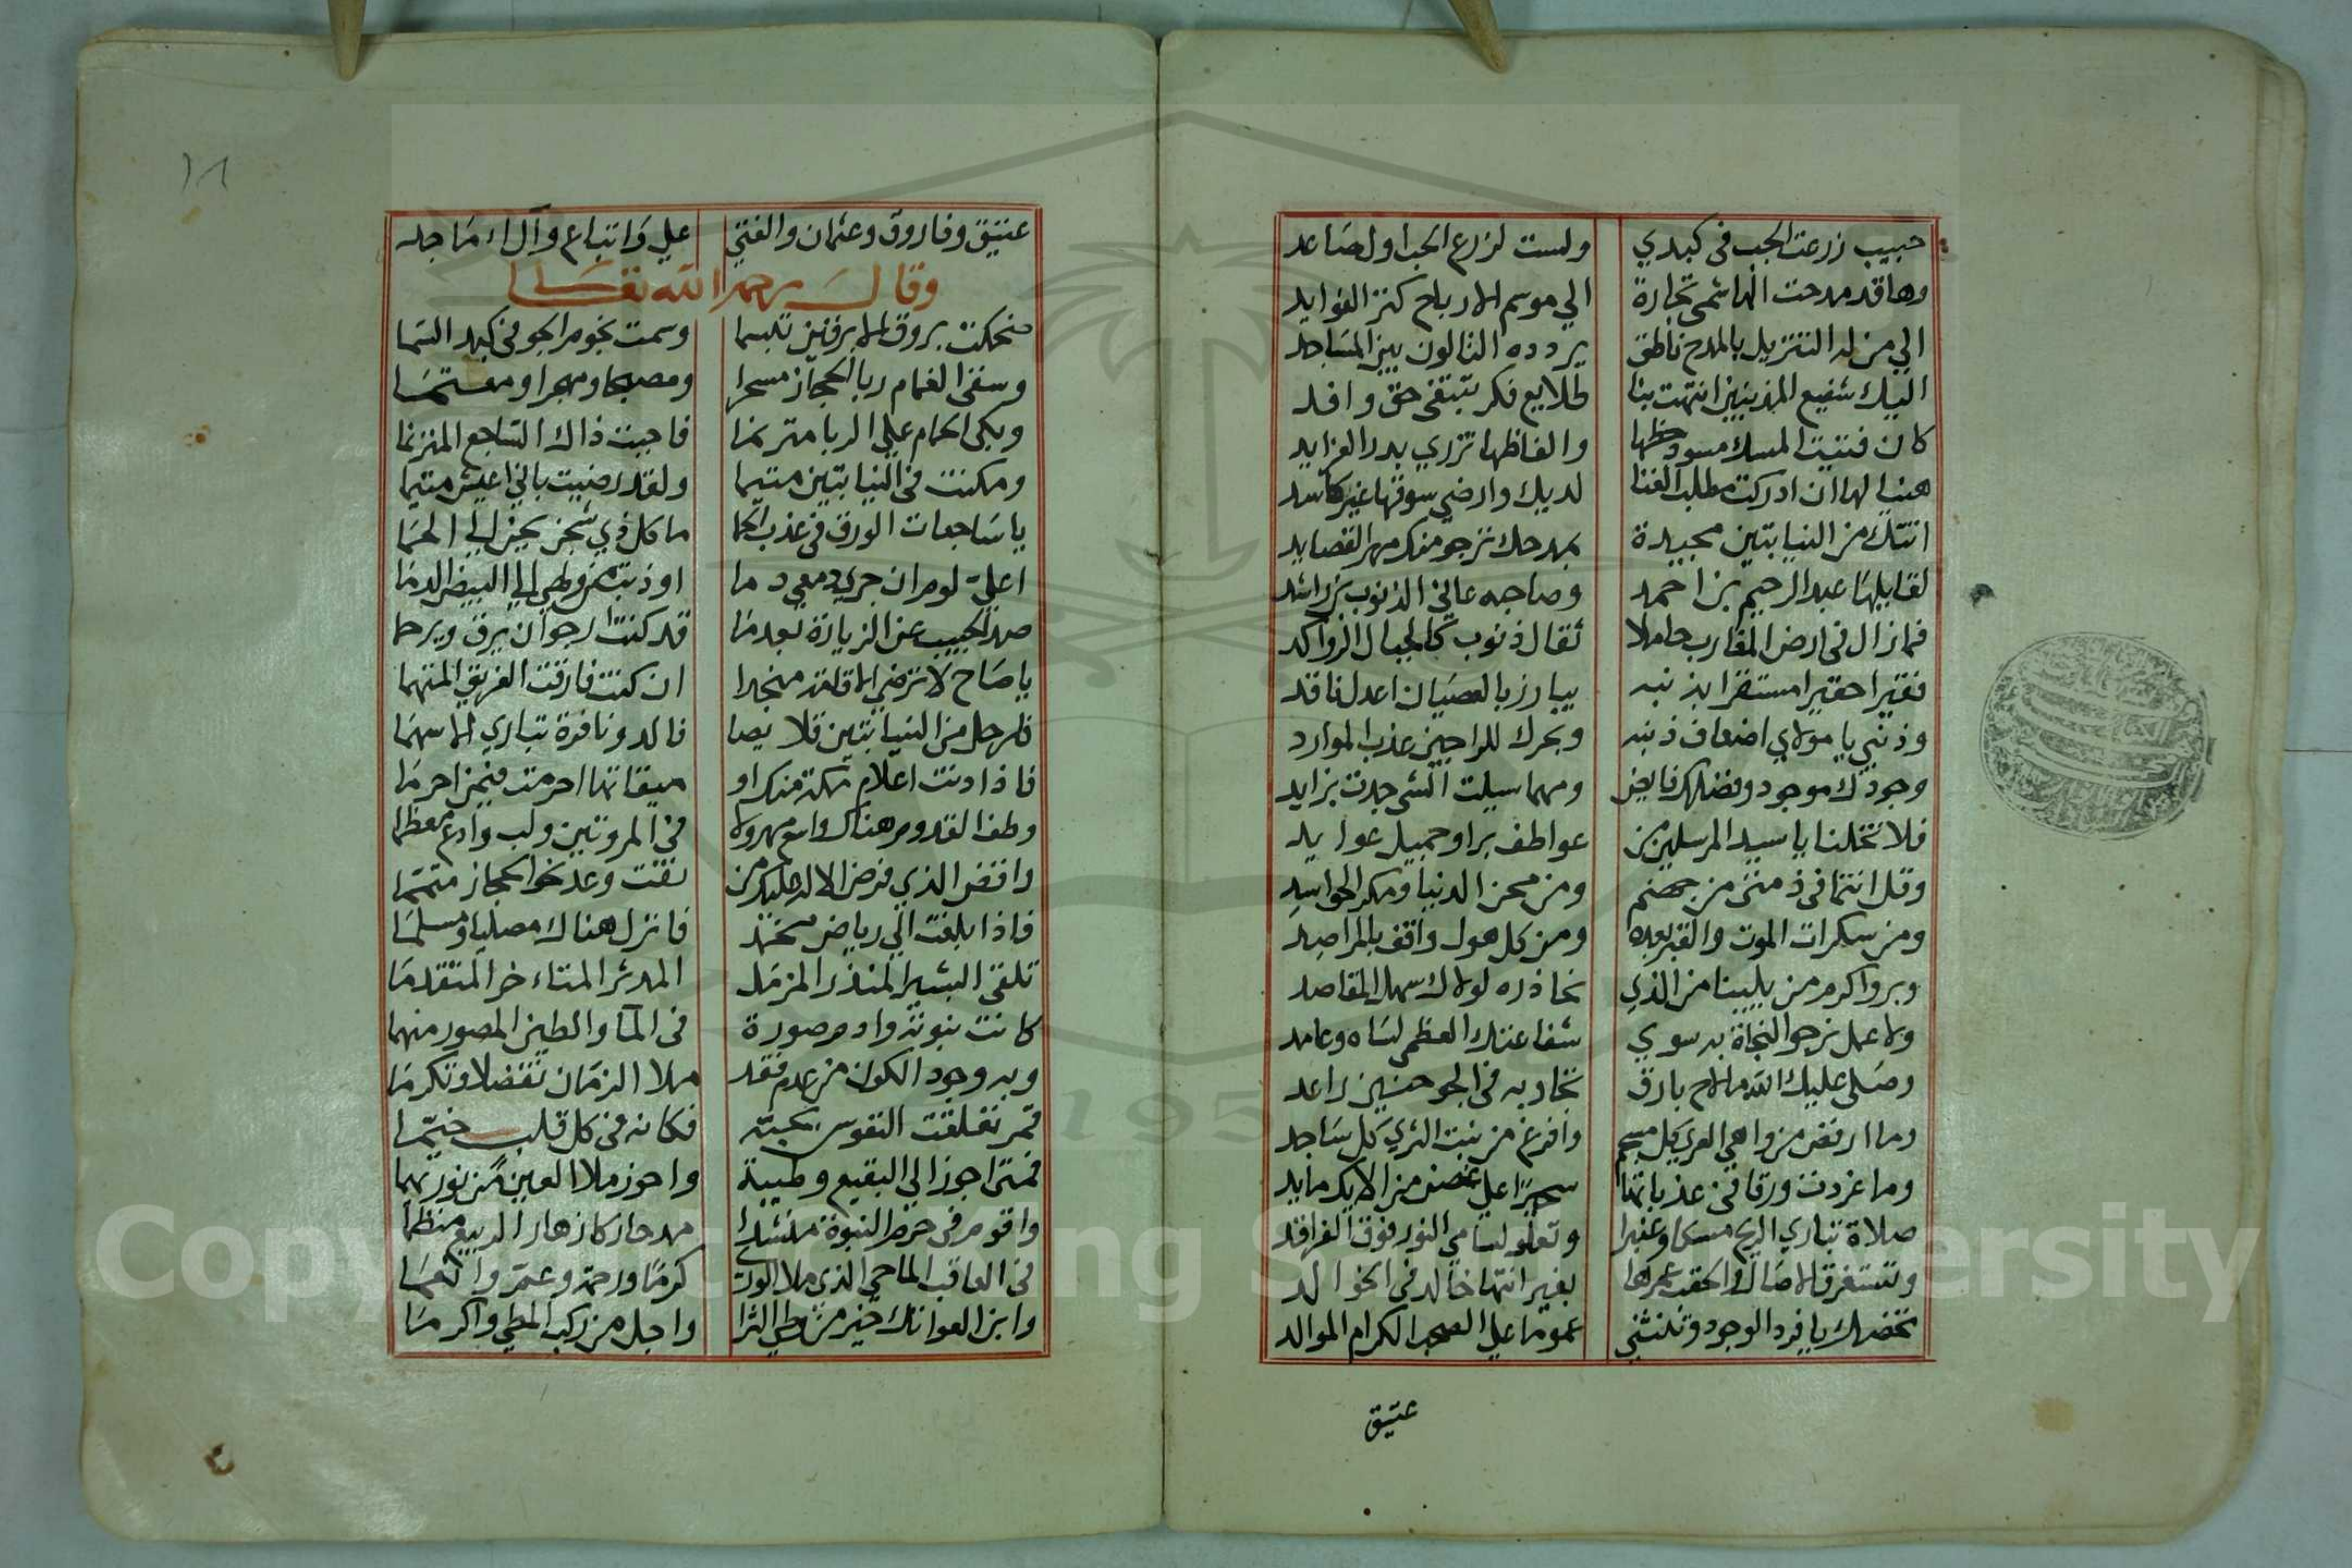 حبيب زرعت الحب في كبدي ولست لزرع الحب اول حاصد
وها قد مدحت الهاشمي تجارة الي موسم الارباح كنز الفوايد
الي من له التنزيل بالمدح ناطق يردده التالون بين المساجد
اليك شفيع المذنبين انتهت بنا طلايع فكر تبتغي حق وافد
كان فتيت المسك مسود خطها والفاظها تزري بدر الفرايد
هنيا لها ان ادركت مطلب الغنا لديك وارضي سوقها غير كاسد
اتتك من النيابتين مجيدة بمدحك ترجو منك مهر القصايد
لقايلها عبد الرحيم بن احمد وصاحبه عاني الذنوب بن راشد
فما زال في ارض المقارب حاملا ثقال ذنوب كالجبال الرواكد
فقيرا حقيرا مستقرا بذنبه يبارز بالعصيان اعدل ناقد
وذنبي يا مولاي اضعاف ذنبه وبحرك للراجين عذب الموارد
وجودك موجود وفضلك فايض ومهما سيلت الشي جدت بزايد
فلا تخلنا يا سيد المرسلين من عواطف بر او جميل عوايد
وقل انتما في ذمتي من جهنم ومن محن الدنيا ومكر الحواسد
ومن سكرات الموت والقبر بعده ومن كل هول واقف بالمراصد
وبر واكرم من يلينا من الذي نحاذره لولاك سهل المقاصد
ولا عمل نرجو النجاة به سوي شفاعتك العظمي لساه وعامد
وصلي عليك الله ما لاح بارق تجاربه في الجو حنين راعد
وما ارفض من واهي العري كل مسجم وافرغ من نبت الثري كل ساجد
وما غردت ورقا في عذباتها سحيرا علي غصن من الايك مايد
صلاة تباري الريح مسكا وعنبرا وتعلو لسامي النور فوق الفراقد
وتستغرق الاصال والحقب عمرها بغير انتها خالد في الخوالد
تخصك يا فرد الوجود وتنثني عموما علي الصحب الكرام الموالد
عتيق
١٨
عتيق وفاروق وعثمان والفتي علي واتباع وآل اماجد
وقال رحمه الله تعالي
ضحكت بروق الابرقين تبسما وسمت نجوم الجو في كبد السما
وسقي الغمام ربا الحجاز مسحرا ومصبحا ومهجرا ومعتما
وبكي الحمام علي الربا مترنما فاجبت ذاك الساجع المترنما
ومكثت في النيابتين متيما ولقد رضيت باني اعيش متيما
يا ساجعات الورق في عذب الحما ما كل ذي شجن يحن الي الحما
اعلي لوم ان جري دمعي دما او ذبت من وطهي الي البيض الدما
صد الحبيب عن الزيارة بعدما قد كنت ارجو ان يرق ويرحما
يا صاح لا ترضي الاقامة منجدا ان كنت فارقت الفريق المتهما
فارحل من النيابتين قلايصا فالدو نافرة تباري الاسهما
فاذا دنت اعلام مكة منك او ميقاتها احرمت فيمن احرما
وطف القدوم هناك واسع مهرولا في المروتين ولب وادع معظما
واقض الذي فرض الاله عليك من نفث وعد نحو الحجاز متمتما
فاذا بلغت الي رياض محمد فانزل هناك مصليا ومسلما
تلقي البشير المنذر المزمل المدثر المتاخر المتقدما
كانت نبوته وادم صورة في المآ والطين المصور منهما
وبه وجود الكون من عدم فقد ملا الزمان تفضلا وتكرما
قمر تعلقت النفوس بحبه فكانه في كل قلب خيما
فمتي اجوز الي البقيع وطيبة واحوز ملا العين من نوريهما
واقوم في حرم النبوة منشدا مدحا كازهار الربيع منظما
في العاقب الماحي الذي ملا الورى كرما ورحمة وعم وانعما
وابن العواتك خير من وطي الثرا واجل من ركب المطي واكرما